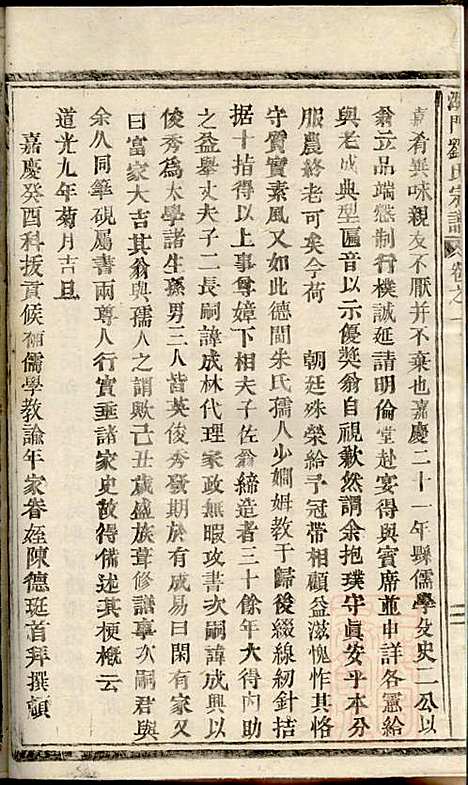 漢門劉氏宗譜 卷之一
嘉肴異味親友不厭并不棄也嘉慶二十一年縣儒學文史二公以
翁立品端慤制行樸誠延請明倫堂赴宴得與賓席並申詳各憲給
與老成典型匾音以示優獎翁自視歉然謂余抱璞守眞安乎本分
服農終老可矣今荷 朝廷殊榮給予冠帶相顧益滋愧怍其恪
守質實素風又如此德閫朱氏孺人少嫺姆教于歸後綴線紉針拮
据十指得以上事尊嫜下相夫子佐翁締造者三十餘年大得內助
之益舉丈夫子二長嗣諱成林代理家政無暇攻書次嗣諱成興以
俊秀為太學諸生孫男三人皆英俊秀發期於有成易曰閑有家又
曰富家大吉其翁與孺人之謂歟己丑歲盛族葺修譜事次嗣君與
余久同筆硯屬書兩尊人行實垂諸家史故得備述其梗槪云
道光九年菊月吉旦
嘉慶癸酉科拔貢候補儒學教諭年家眷姪陳德珽首拜撰頓